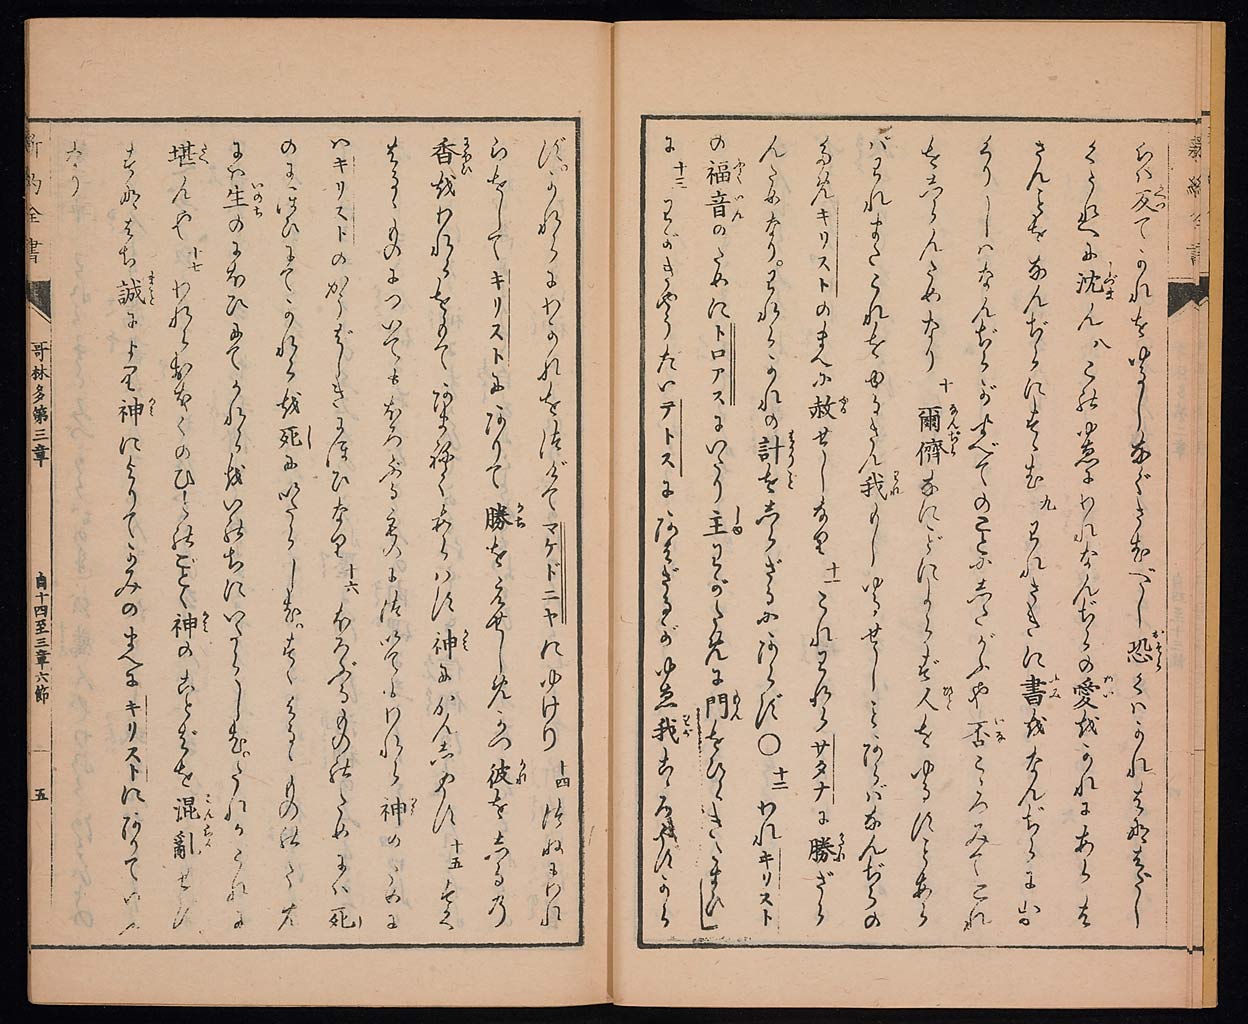 らバ反てかれをゆるしなぐさむべし恐くハかれはなはだし
きうれへに沈ん八このゆゑにわれなんぢらの愛をかれにあらは
さんことをなんぢらにすゝむ九われさきに書をなんぢらにおく
りしハなんぢらがすべてのことにしたがふや否こゝろみてこれ
をしらんためなり十爾儕なにごとによらず人をゆるすことあら
バわれもまたこれをゆるさん我もしゆるせしことあらバなんぢらの
ためキリストのまへに赦せしなり十一これわれらサタナに勝ざら
んためなりわれらかれの計をしらざるにあらず〇十二われキリスト
の福音のためにトロアスにいたり主わがために門をひらきたまひし
に十三わがきやうだいテトスにあはざるがゆゑ我こゝろやすから
ず かれらにわかれをつげてマケドニヤにゆけり十四つねにわれ
らをしてキリストにありて勝をえせしめかつ彼をしるの
香をわれらをもてあまねくあらハす神にかんしやす十五そハ
すくはるゝものについても ほろぶる者につきてもわれら神のために
ハキリストのかうばしきにほひなり十六ほろぶるもののためにハ死
のにほひにてかれらを死にいたらしむ すくはるゝもののため
にハ生のにほひにてかれらをいのちにいたらしむ たれかこれに
堪んや十七われらおほくのひとのごとく神のことばを混亂せず
すなはち誠により神によりてかみのまへにキリストにありていへ
るなり
新約全書
哥林多第三章
自十四至三章六節
五